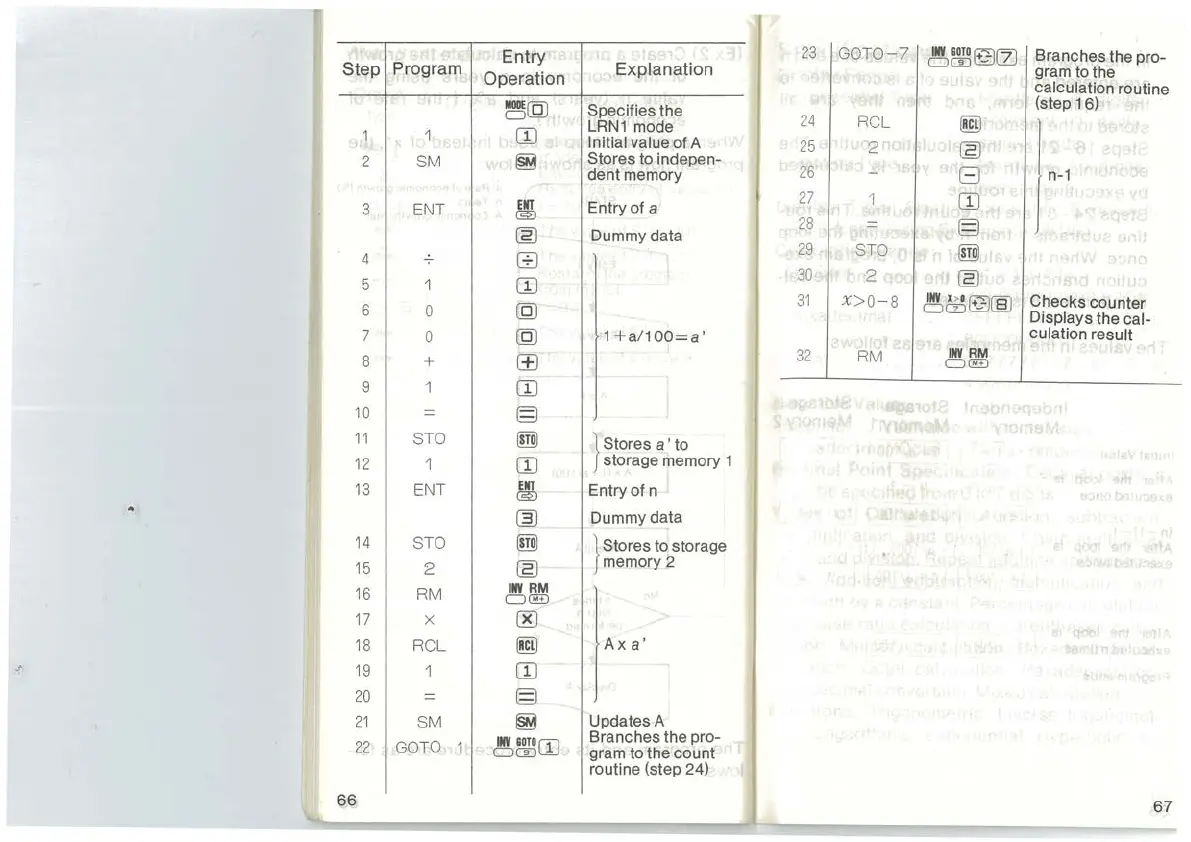 Step Program Entry Operation Explanation
MODE 0 Specifies the
LRN1 mode
1 1 1 Initial value of A
2 SM SM Stores to indepen-
dent memory
3 ENT ENT Entry of a
2 Dummy data
4 ÷ ÷
5 1 1
6 0 0
7 0 0 1+a/100=a'
8 + +
9 1 1
10 = =
11 STO STO Stores a' to
12 1 1 storage memory 1
13 ENT ENT Entry of n
3 Dummy data
14 STO STO Stores to storage
15 2 2 memory 2
16 RM INV RM M+
17 × ×
18 RCL RCL A x a'
19 1 1
20 = =
21 SM SM Updates A
22 GOTO 1 INV GOTO 9 1 Branches the pro-
gram to the count
routine (step 24)
66
23 GOTO−7 INV GOTO 9 7 Branches the pro-
gram to the
calculation routine
(step 16)
24 RCL RCL
25 2 2
26 − − n-1
27 1 1
28 = =
29 STO STO
30 2 2
31 x>0−8 INV x>0 7 8 Checks counter
Displays the cal-
culation result
32 RM INV RM M+
67